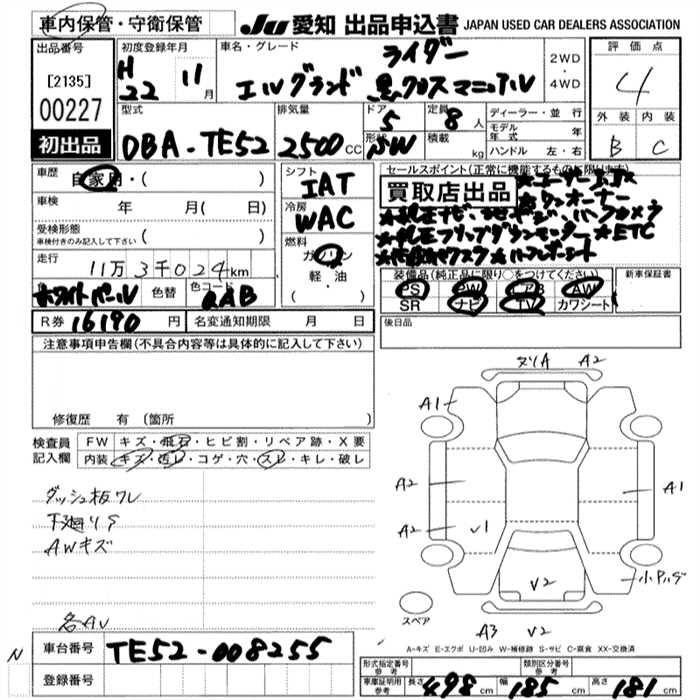 車内保管・守衛保管
JU 愛知 出品申込書 JAPAN USED CAR DEALERS ASSOCIATION
出品番号
[2135]
00227
初出品
初度登録年月
H22 11月
車名・グレード
ライダー
エルグランド 黒 マニアル
2WD
・
4WD
評価点
4
外装 内装
B C
型式
DBA-TE52
排気量
2500cc
ドア
5
形状
SW
定員
8人
積載
kg
ディーラー・並行
モデル年式 年
ハンドル 左・右
車歴
自家用・( )
車検
年 月( 日)
受検形態
車検付きのみ記入して下さい ( )
走行
11万3千024km
色
ホワイトパール
色替
色コード
QAB
シフト
IAT
冷房
WAC
燃料
ガソリン
軽・油
( )
セールスポイント(正常に機能するものに限ります)
買取店出品
オーナー
★純正ナビ
★純正フリップダウンモニター ★ETC
装備品(純正品に限り○をつけてください)
PS PW エアB AW
SR ナビ TV カワシート
新車保証書
後日品
R券 16190円
名変通知期限 月 日
注意事項申告欄(不具合内容等は具体的に記入して下さい)
修復歴 有 (箇所
検査員記入欄
FW キズ・飛石・ヒビ割・リペア跡・X要
内装 キズ・汚レ・コゲ・穴・スレ・キレ・破レ
ダッシュ板ワレ
下廻りS
AWキズ
各AU
ヌリA A2
A1
A2
A1
A2
V1
V2
スペア
A3 V2
A-キズ E-エクボ U-凹み W-補修跡 S-サビ C-腐食 XX-交換済
N
車台番号 TE52-008255
登録番号
形式指定番号
参考
類別区分番号
参考
車庫証明用
参考
長さ 498cm 幅 185cm 高さ 181cm